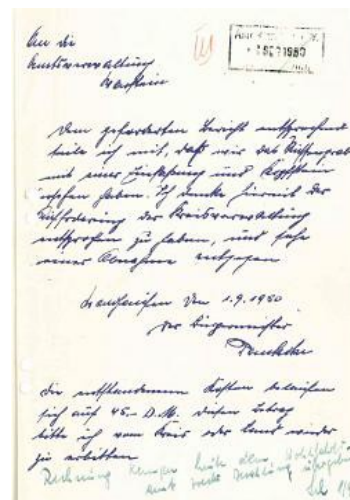 An die
Amtsverwaltung
III
Dem geforderten Bericht entsprechend
teile ich mit, daß wir das Russengrab
mit einer Einfassung und Kopfstein
versehen haben. Ich denke hiermit der
Aufforderung der Kreisverwaltung
entsprochen zu haben, und sehe
einer Abnahme entgegen
den 1.9.1950
Der Bürgermeister
Die entstandenen Kosten belaufen
sich auf 45,- D.M. diesen Betrag
bitte ich vom Kreis oder Land wieder
zu erbitten
Rechnung